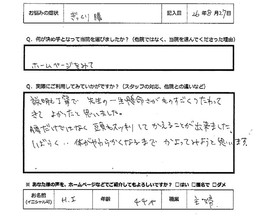 お悩みの症状 ぎっくり腰 記入日 26年8月27日
Q. 何が決め手となって当院を選びましたか?(他院ではなく、当院を選んでくださった理由)
ホームページをみて
Q. 実際にご利用してみていかがですか?(スタッフの対応、他院との違いなど)
説明も丁寧で 先生の一生懸命さがものすごくつたわって
きて よかったと思いました。
腰だけではなく 豆頁もスッキリして かえることが出来ました。
しばらく… 体がやわらかくなるまで かよってみようと思います。
※ あなた様の声を、ホームページなどでご紹介してもよろしいですか? □はい □匿名で □ダメ
お名前 (イニシャル可) H.I 年齢 職業 主婦